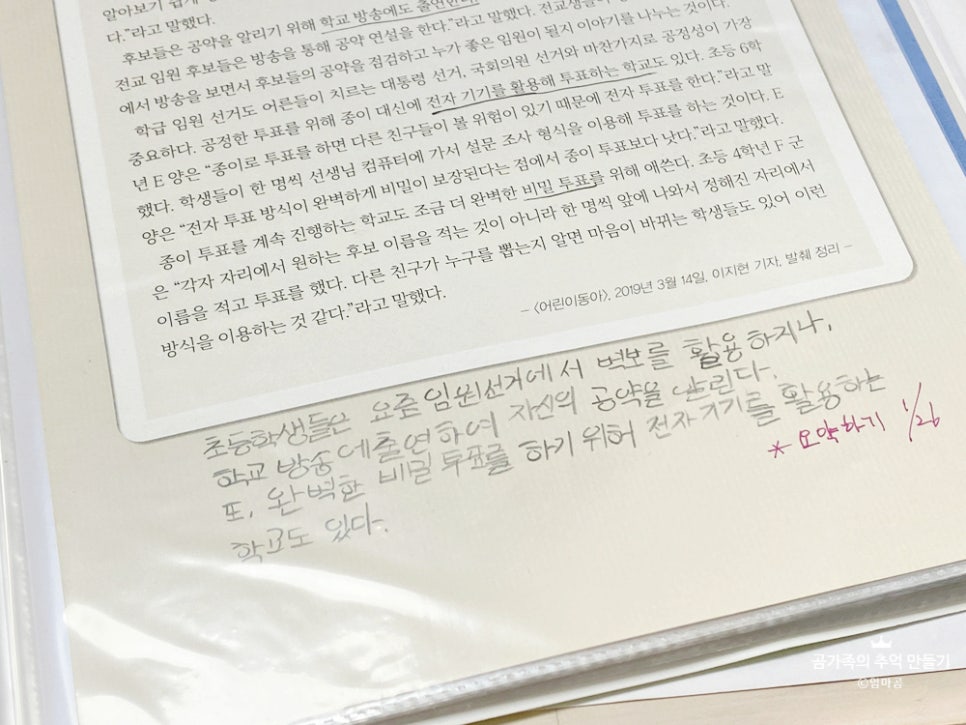 알아보기 쉽게
다.”라고 말했다.
후보들은 공약을 알리기 위해 학교 방송에도 출연한다.
전교 임원 후보들은 방송을 통해 공약 연설을 한다.”라고 말했다. 전교생들이
에서 방송을 보면서 후보들의 공약을 점검하고 누가 좋은 임원이 될지 이야기를 나누는 것이다.
학급 임원 선거도 어른들이 치르는 대통령 선거, 국회의원 선거와 마찬가지로 공정성이 가장
중요하다. 공정한 투표를 위해 종이 대신에 전자 기기를 활용해 투표하는 학교도 있다. 초등 6학
년 E 양은 “종이로 투표를 하면 다른 친구들이 볼 위험이 있기 때문에 전자 투표를 한다.”라고 말
했다. 학생들이 한 명씩 선생님 컴퓨터에 가서 설문 조사 형식을 이용해 투표를 하는 것이다. E
양은 “전자 투표 방식이 완벽하게 비밀이 보장된다는 점에서 종이 투표보다 낫다.”라고 말했다.
종이 투표를 계속 진행하는 학교도 조금 더 완벽한 비밀 투표를 위해 애쓴다. 초등 4학년 F 군
은 “각자 자리에서 원하는 후보 이름을 적는 것이 아니라 한 명씩 앞에 나와서 정해진 자리에서
이름을 적고 투표를 했다. 다른 친구가 누구를 뽑는지 알면 마음이 바뀌는 학생들도 있어 이런
방식을 이용하는 것 같다.”라고 말했다.
– 〈어린이동아〉, 2019년 3월 14일, 이지현 기자, 발췌 정리 –
초등학생들은 요즘 임원선거에서 벽보를 활용하지나,
학교 방송에 출연하여 자신의 공약을 알린다.
또, 완벽한 비밀 투표를 하기 위허 전자기기를 활용하는
학교도 있다.
* 요약하기 1/26
곰가족의 추억 만들기
©엄마곰